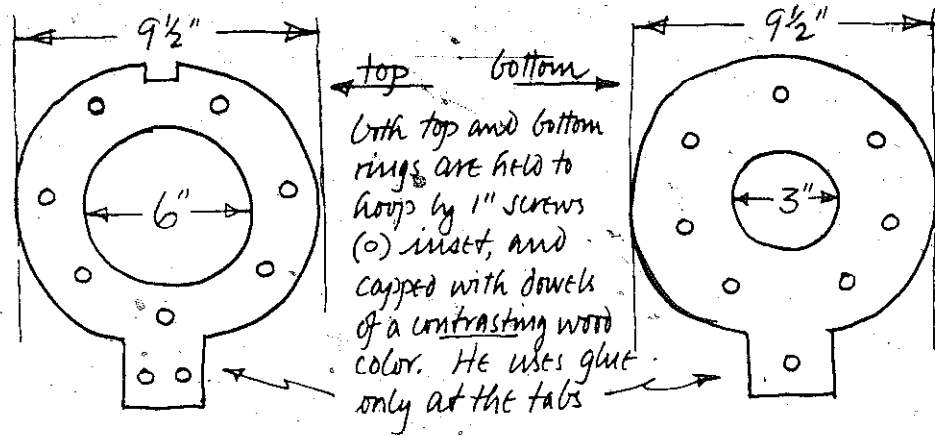 9½" 9½"
top bottom
both top and bottom
rings are held to
hoop by 1" screws
(o) inset, and
capped with dowels
of a contrasting wood
color. He uses glue
only at the tabs
6"
3"